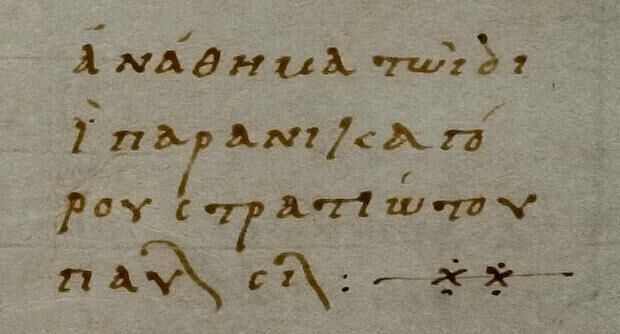 ἀνάθημα τῶι δι
ὶ παρα νικαγό
ρου στρατιώτου
παυλ σιλ :